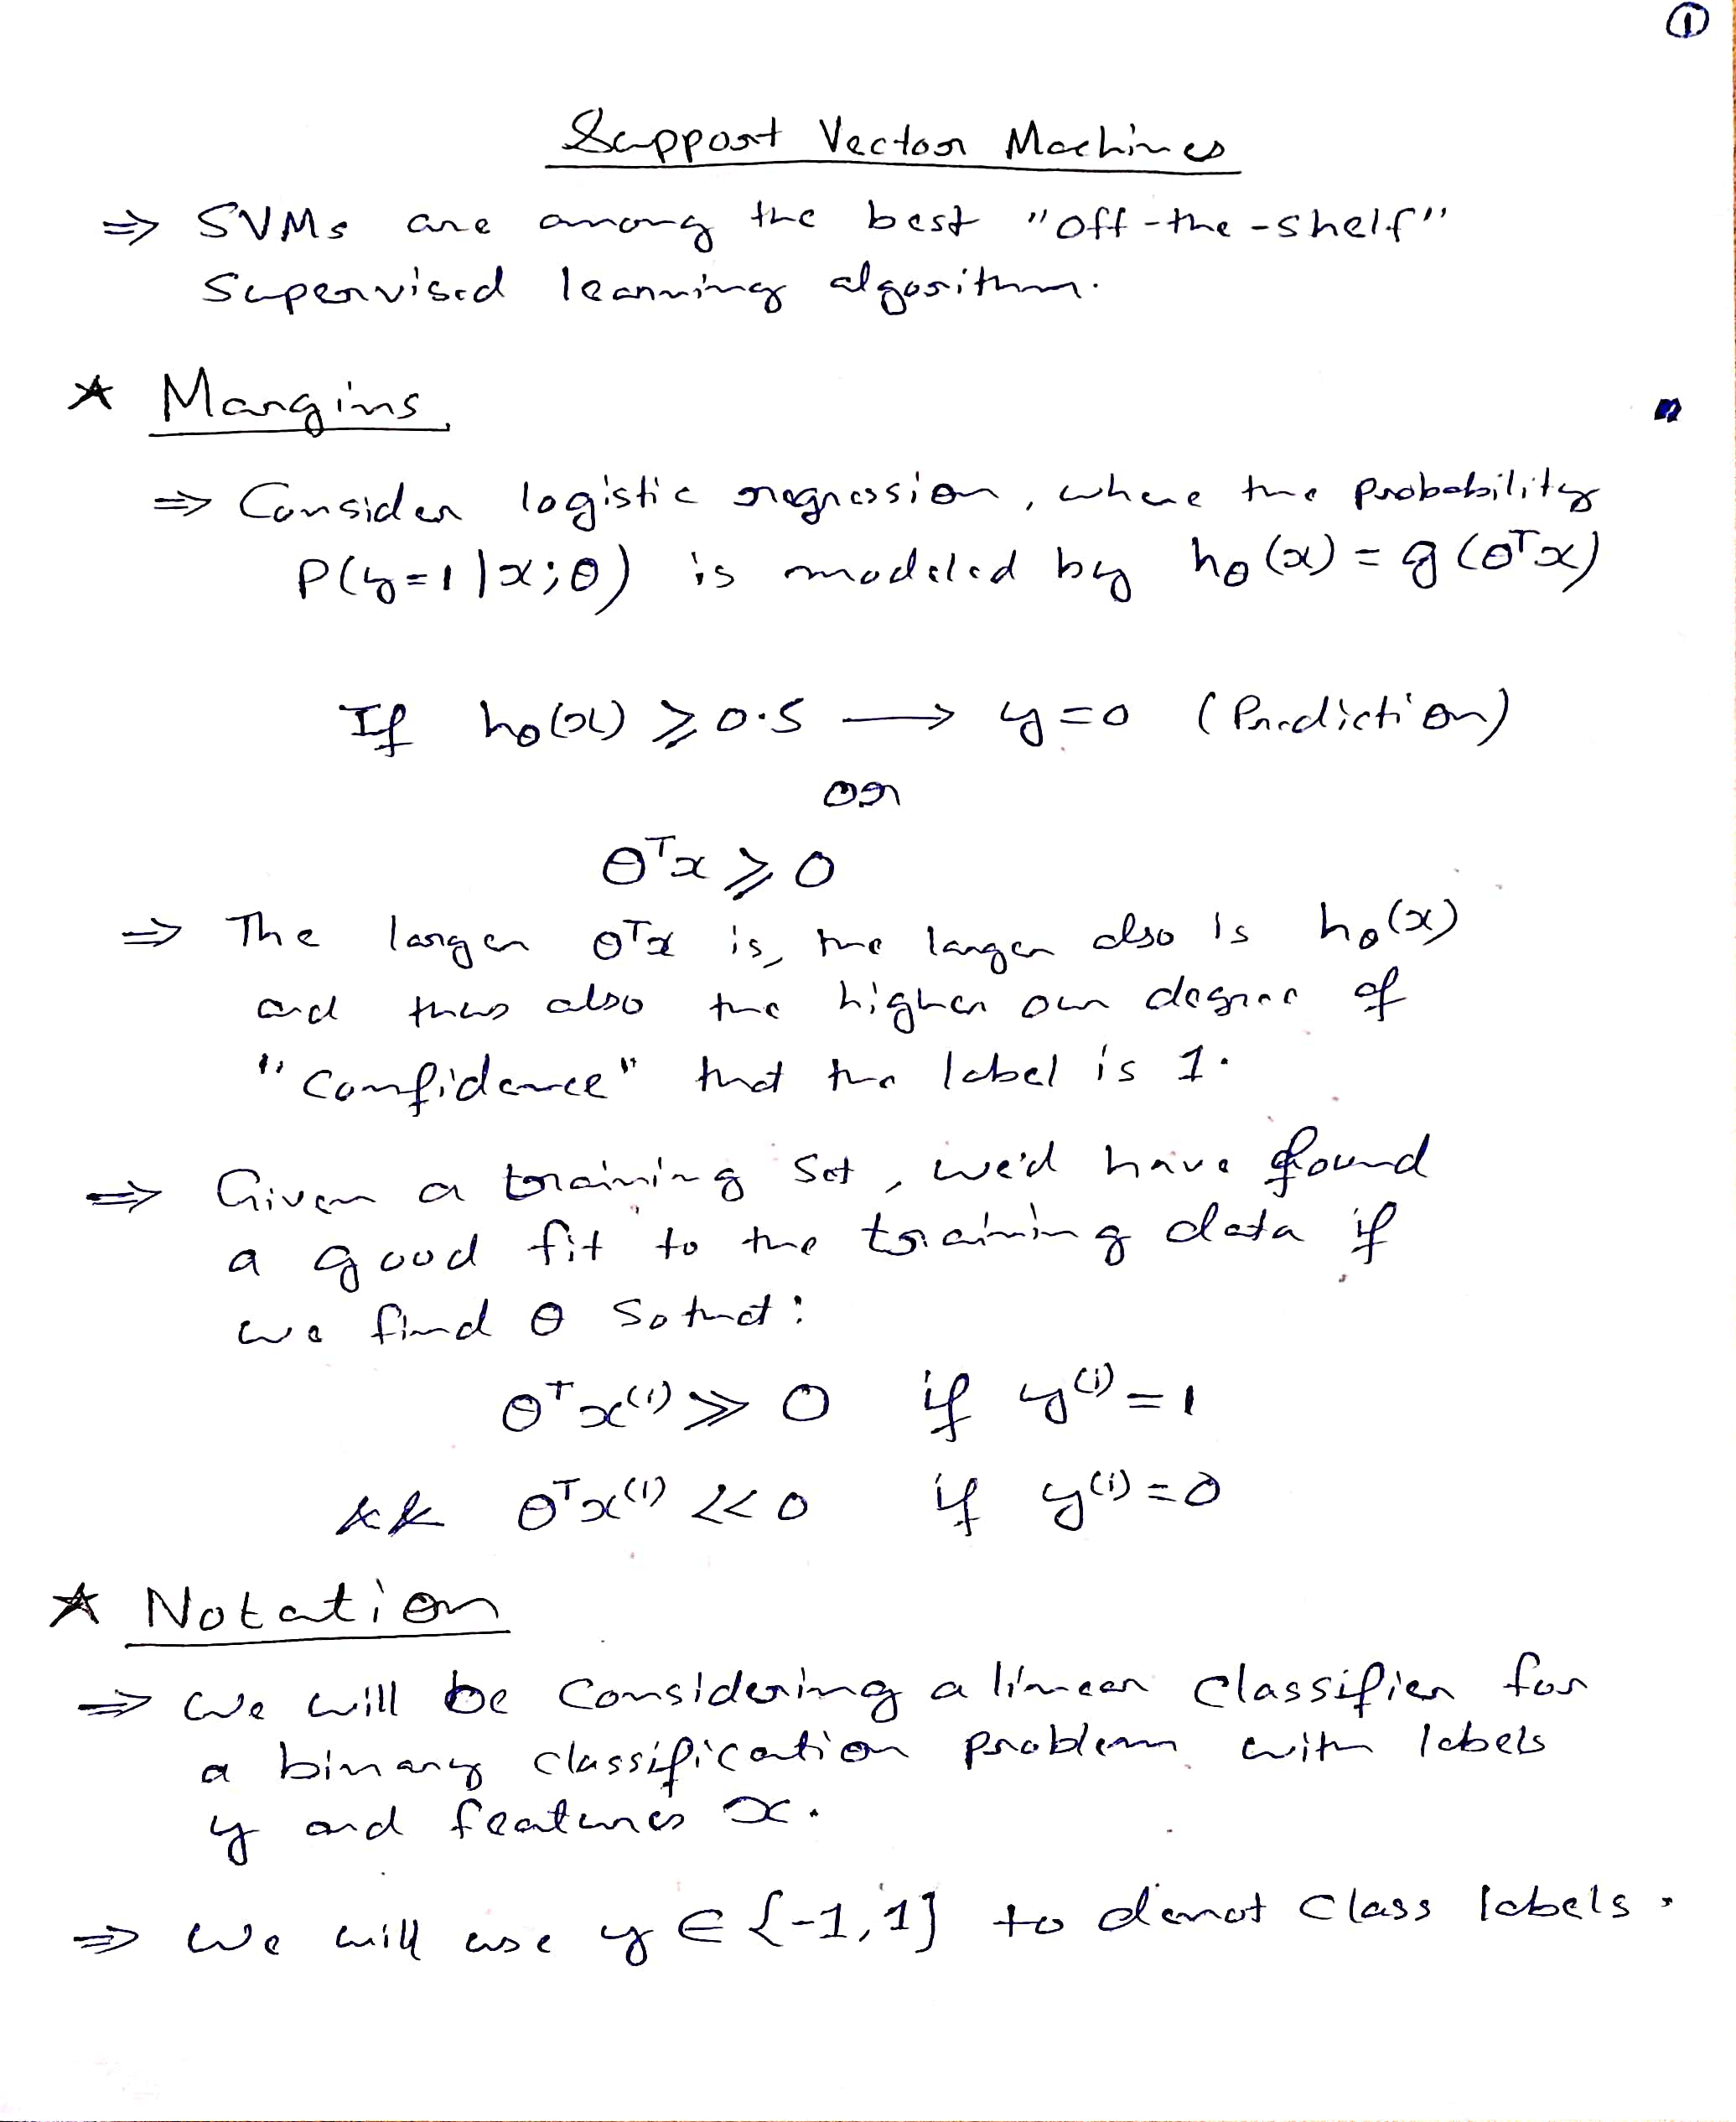 ①
Support Vector Machines
⇒ SVMs are among the best "off-the-shelf"
Supervised learning algorithm.
* Margins
⇒ Consider logistic regression, where the probability
P(y=1|x;θ) is modeled by hθ(x) = g(θᵀx)
If hθ(x) ⩾ 0.5 → y=0 (Prediction)
or
θᵀx ⩾ 0
⇒ The larger θᵀx is, the larger also is hθ(x)
and thus also the higher our degree of
"Confidence" that the label is 1.
⇒ Given a training set, we'd have found
a good fit to the training data if
we find θ so that:
θᵀx⁽ⁱ⁾ ≫ 0 if y⁽ⁱ⁾ = 1
&& θᵀx⁽ⁱ⁾ << 0 if y⁽ⁱ⁾ = 0
* Notation
⇒ We will be considering a linear classifier for
a binary classification problem with labels
y and features x.
⇒ We will use y ∈ {-1,1} to denot class labels.